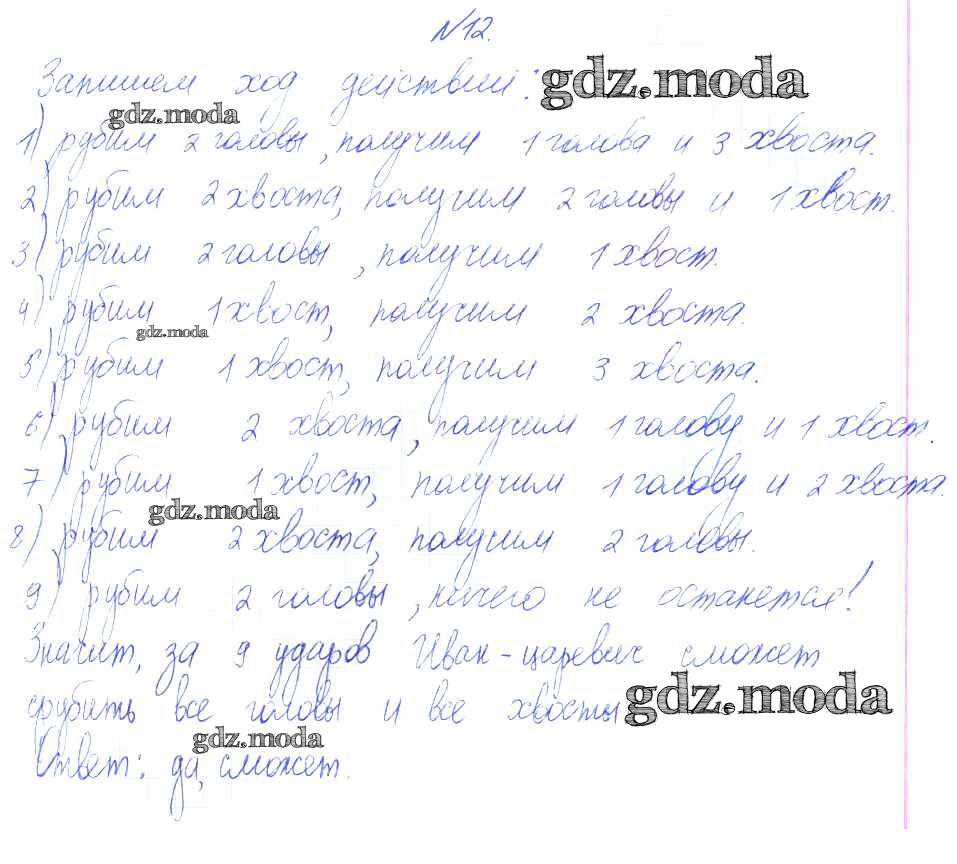 №12.
Запишем ход действий: gdz.moda
gdz.moda
1) рубим 2 головы, получим 1 голова и 3 хвоста.
2) рубим 2 хвоста, получим 2 головы и 1 хвост.
3) рубим 2 головы, получим 1 хвост.
4) рубим 1 хвост, получим 2 хвоста.
gdz.moda
5) рубим 1 хвост, получим 3 хвоста.
6) рубим 2 хвоста, получим 1 голову и 1 хвост.
7) рубим 1 хвост, получим 1 голову и 2 хвоста.
gdz.moda
8) рубим 2 хвоста, получим 2 головы.
9) рубим 2 головы, ничего не останется!
Значит, за 9 ударов Иван-царевич сможет
срубить все головы и все хвосты gdz.moda
gdz.moda
Ответ: да, сможет.